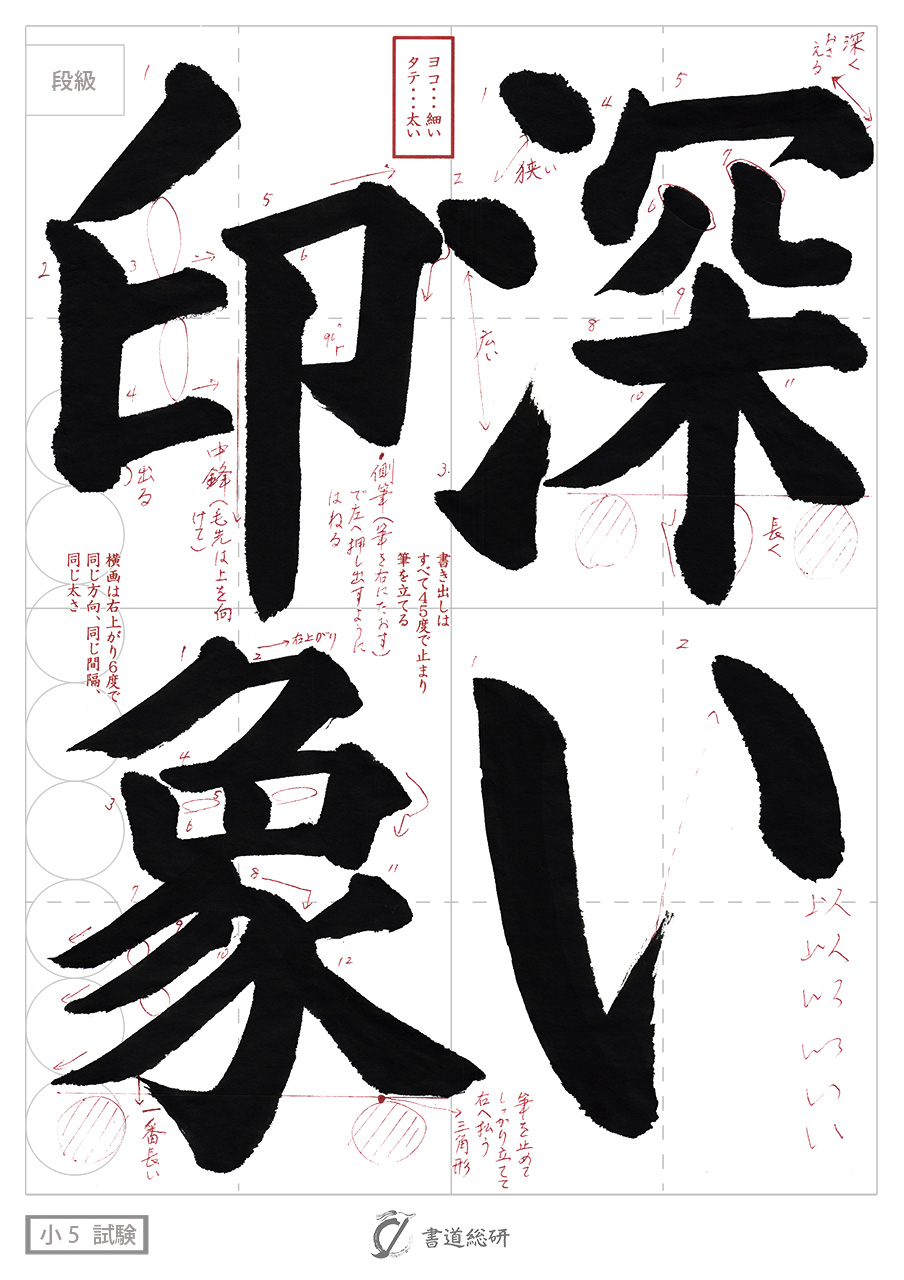 深い
印象
段級
ヨコ・・・細い
タテ・・・太い
深く
おさ
える
狭い
広い
長く
90°
出る
中鋒(毛先は上を向
けて)
側筆(筆を右にたおす)
で左へ押し出すように
はねる
書き出しは
すべて45度で止まり
筆を立てる
横画は右上がり6度で
同じ方向、同じ間隔、
同じ太さ
右上がり
一番長い
筆を止めて
しっかり立てて
右へ払う
三角形
以
以
い
小5 試験
書道総研